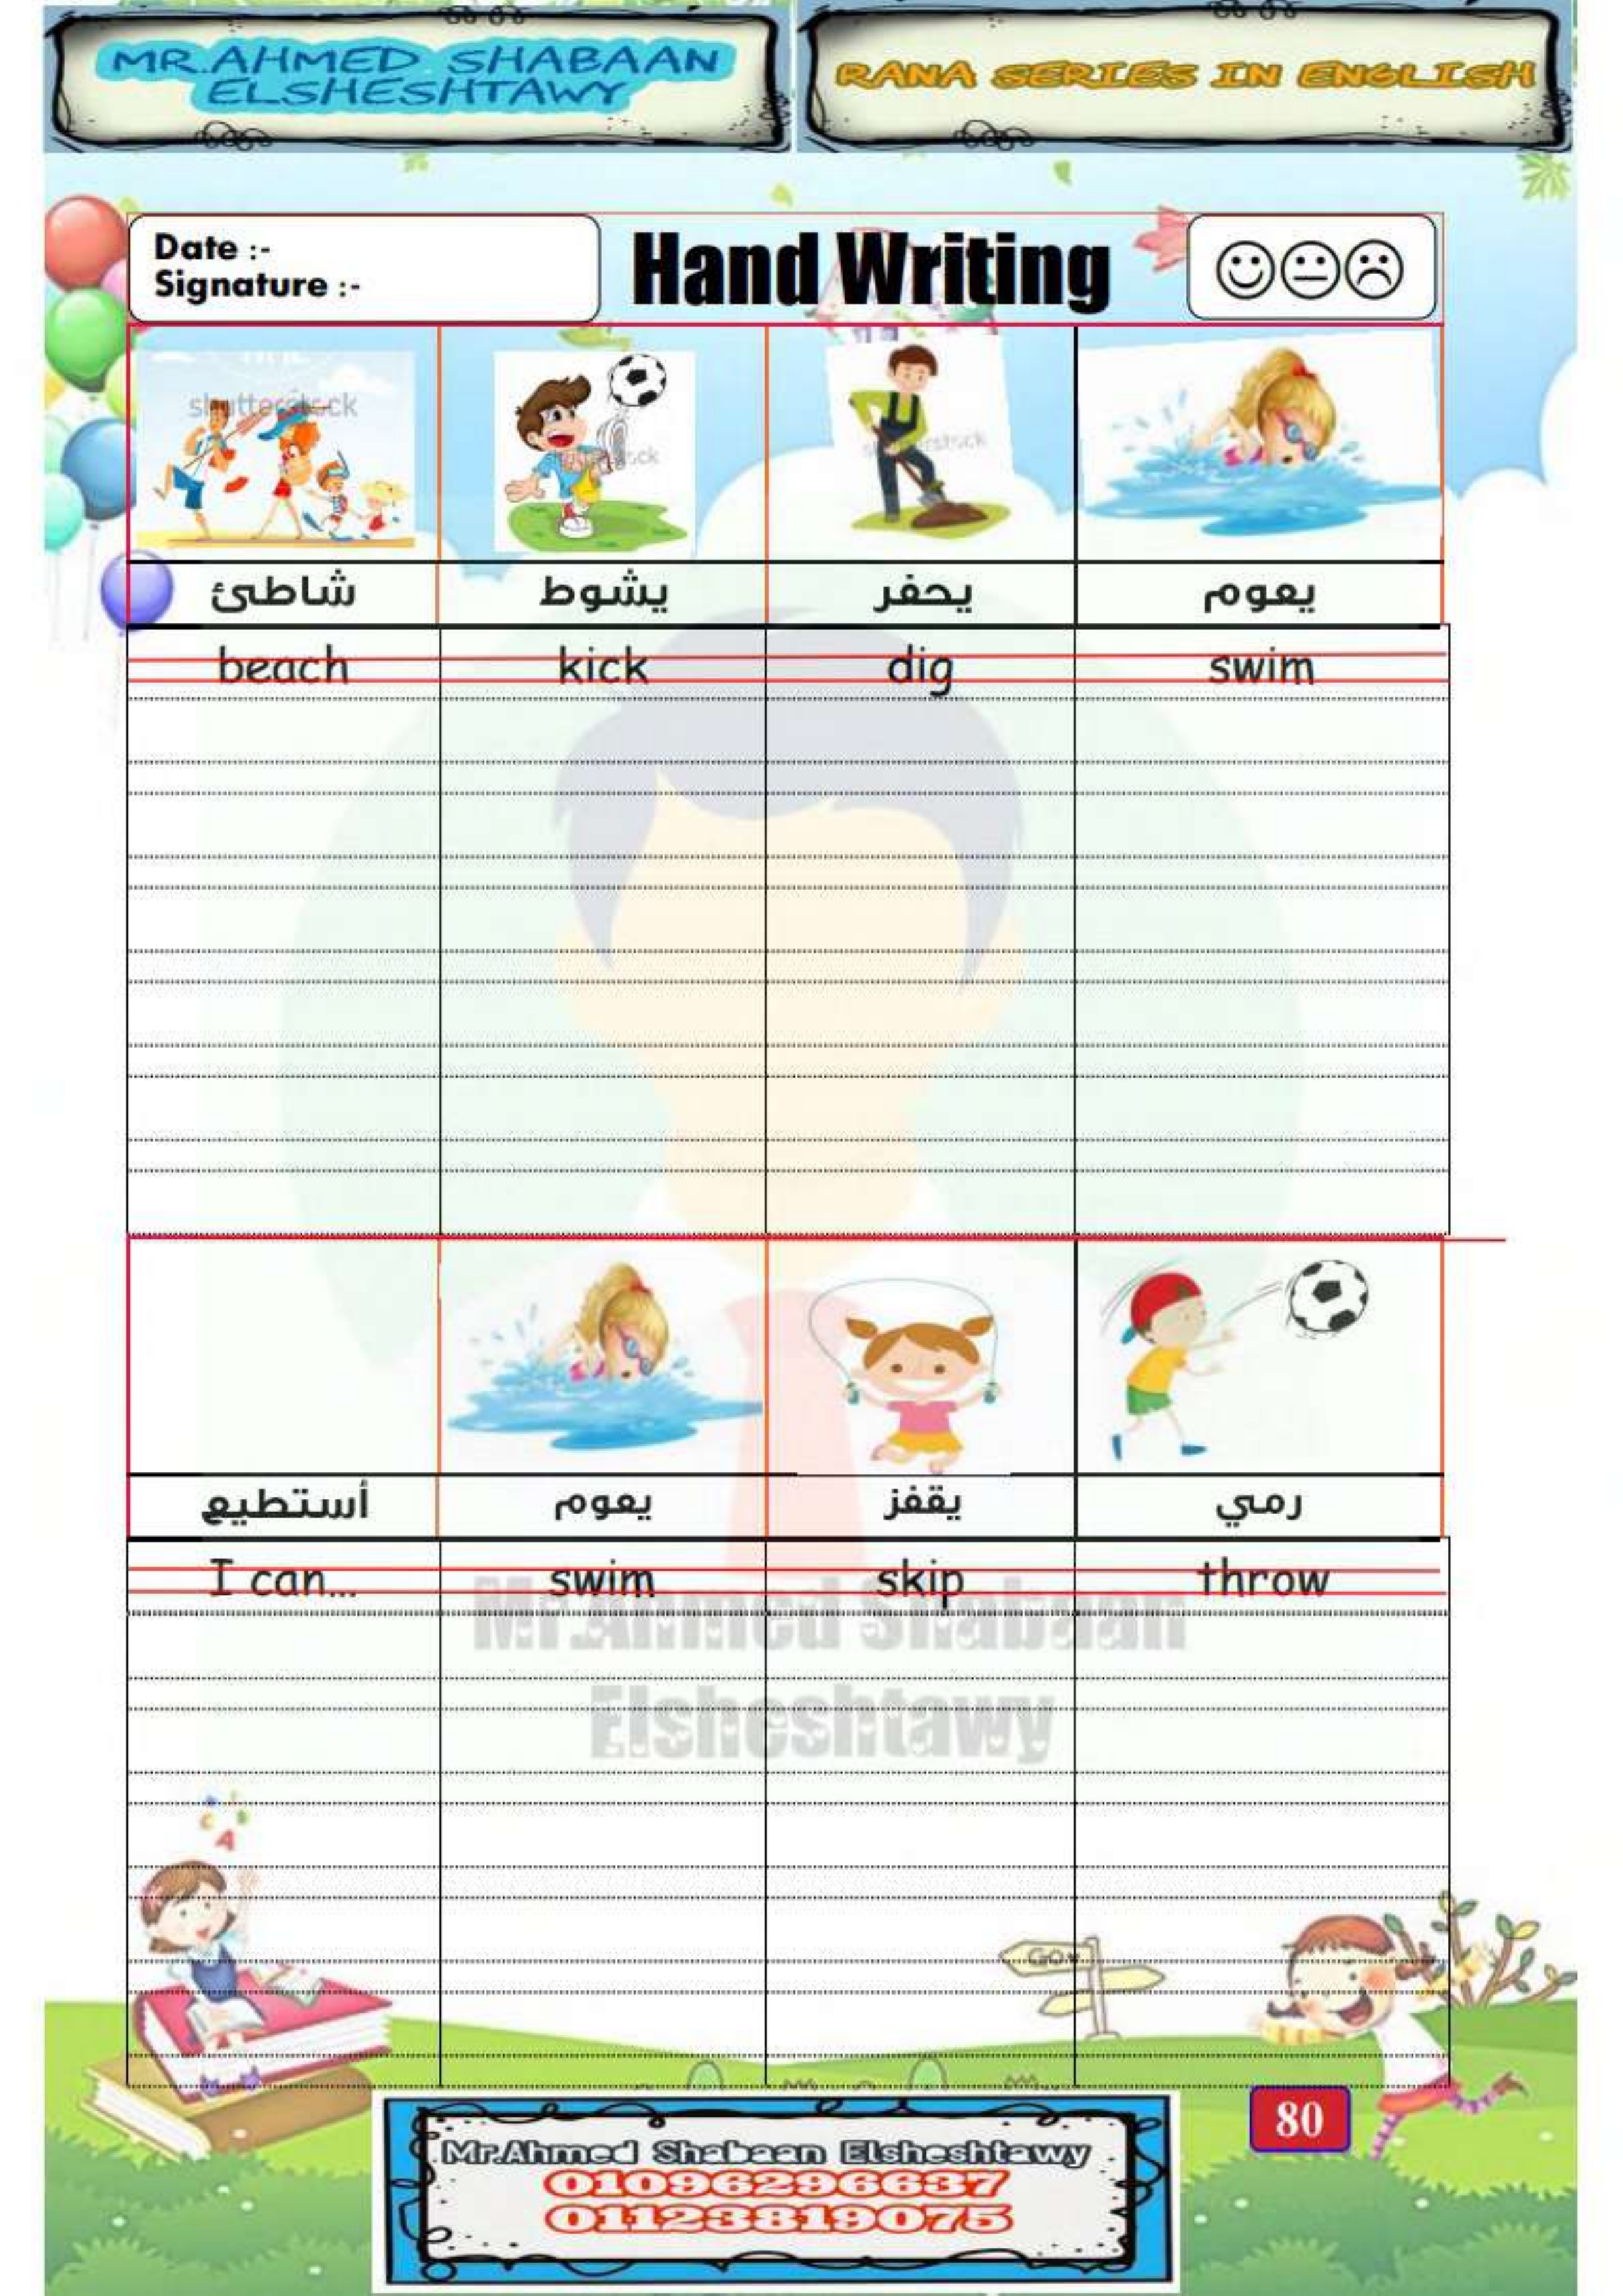 MR.AHMED SHABAAN
ELSHESHTAWY
RANA SERIES IN ENGLISH
Date :-
Signature :-
Hand Writing
shutterstock
shutterstock
shutterstock
شاطئ يشوط يحفر يعوم
beach kick dig swim
أستطيع يعوم يقفز رمي
I can... swim skip throw
Mr.Ahmed Shabaan
Elsheshtawy
A
GO
80
Mr.Ahmed Shabaan Elsheshtawy
01096296637
01123819075